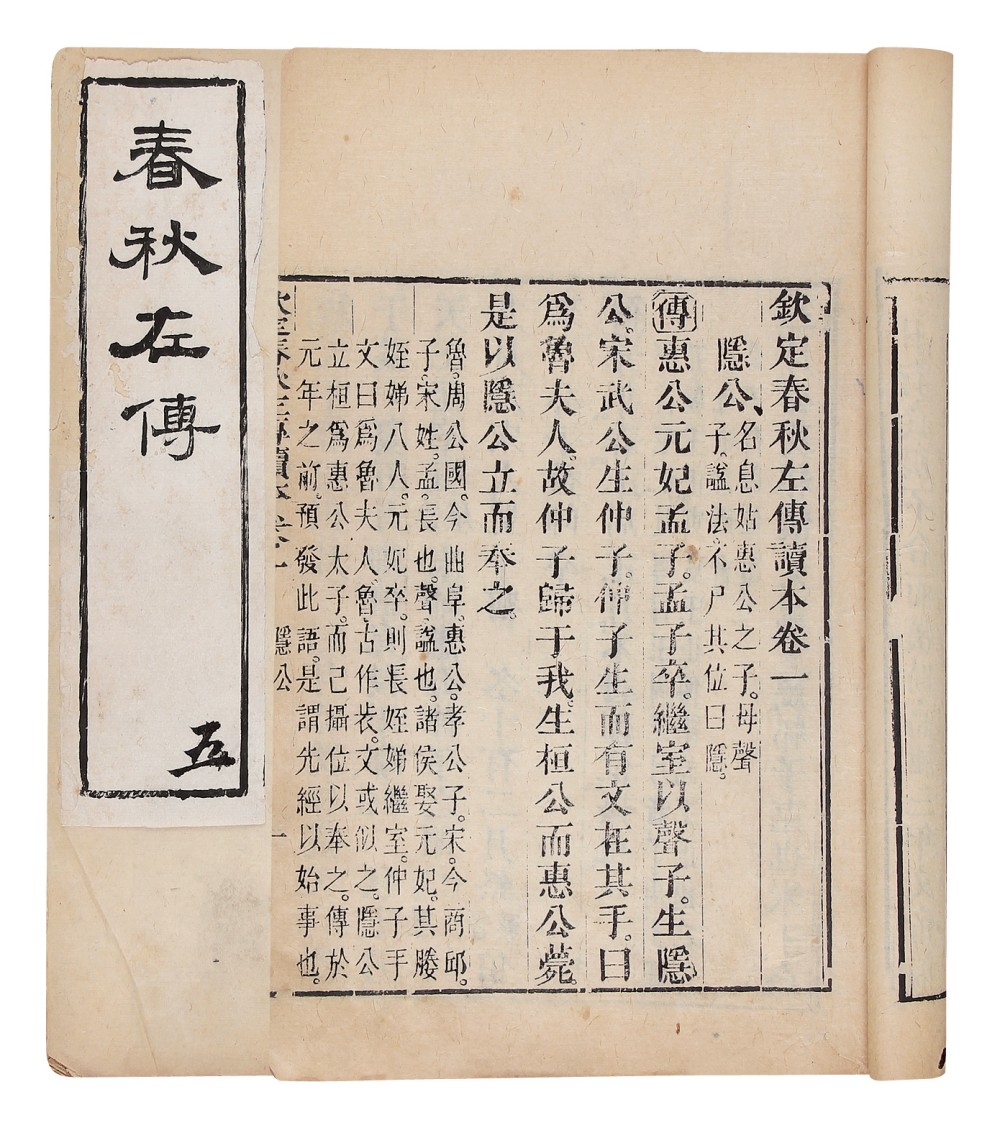 春秋左傳
五
欽定春秋左傳讀本卷一
隱公、名息姑惠公之子。母聲
子。諡法。不尸其位曰隱。
傳惠公元妃孟子。孟子卒。繼室以聲子。生隱
公。宋武公生仲子。仲子生而有文在其手。曰
爲魯夫人。故仲子歸于我。生桓公而惠公薨。
是以隱公立而奉之。
魯。周公國。今曲阜。惠公。孝公子。宋。今商邱。
子。宋姓。孟。長也。聲。諡也。諸侯娶元妃。其媵
姪娣八人。元妃卒。則長姪娣繼室。仲子手
文曰爲魯夫人。魯古作。文或似之。隱公
立桓爲惠公太子。而己攝位以奉之。傳於
元年之前。預發此語。是謂先經以始事也。
隱公 一